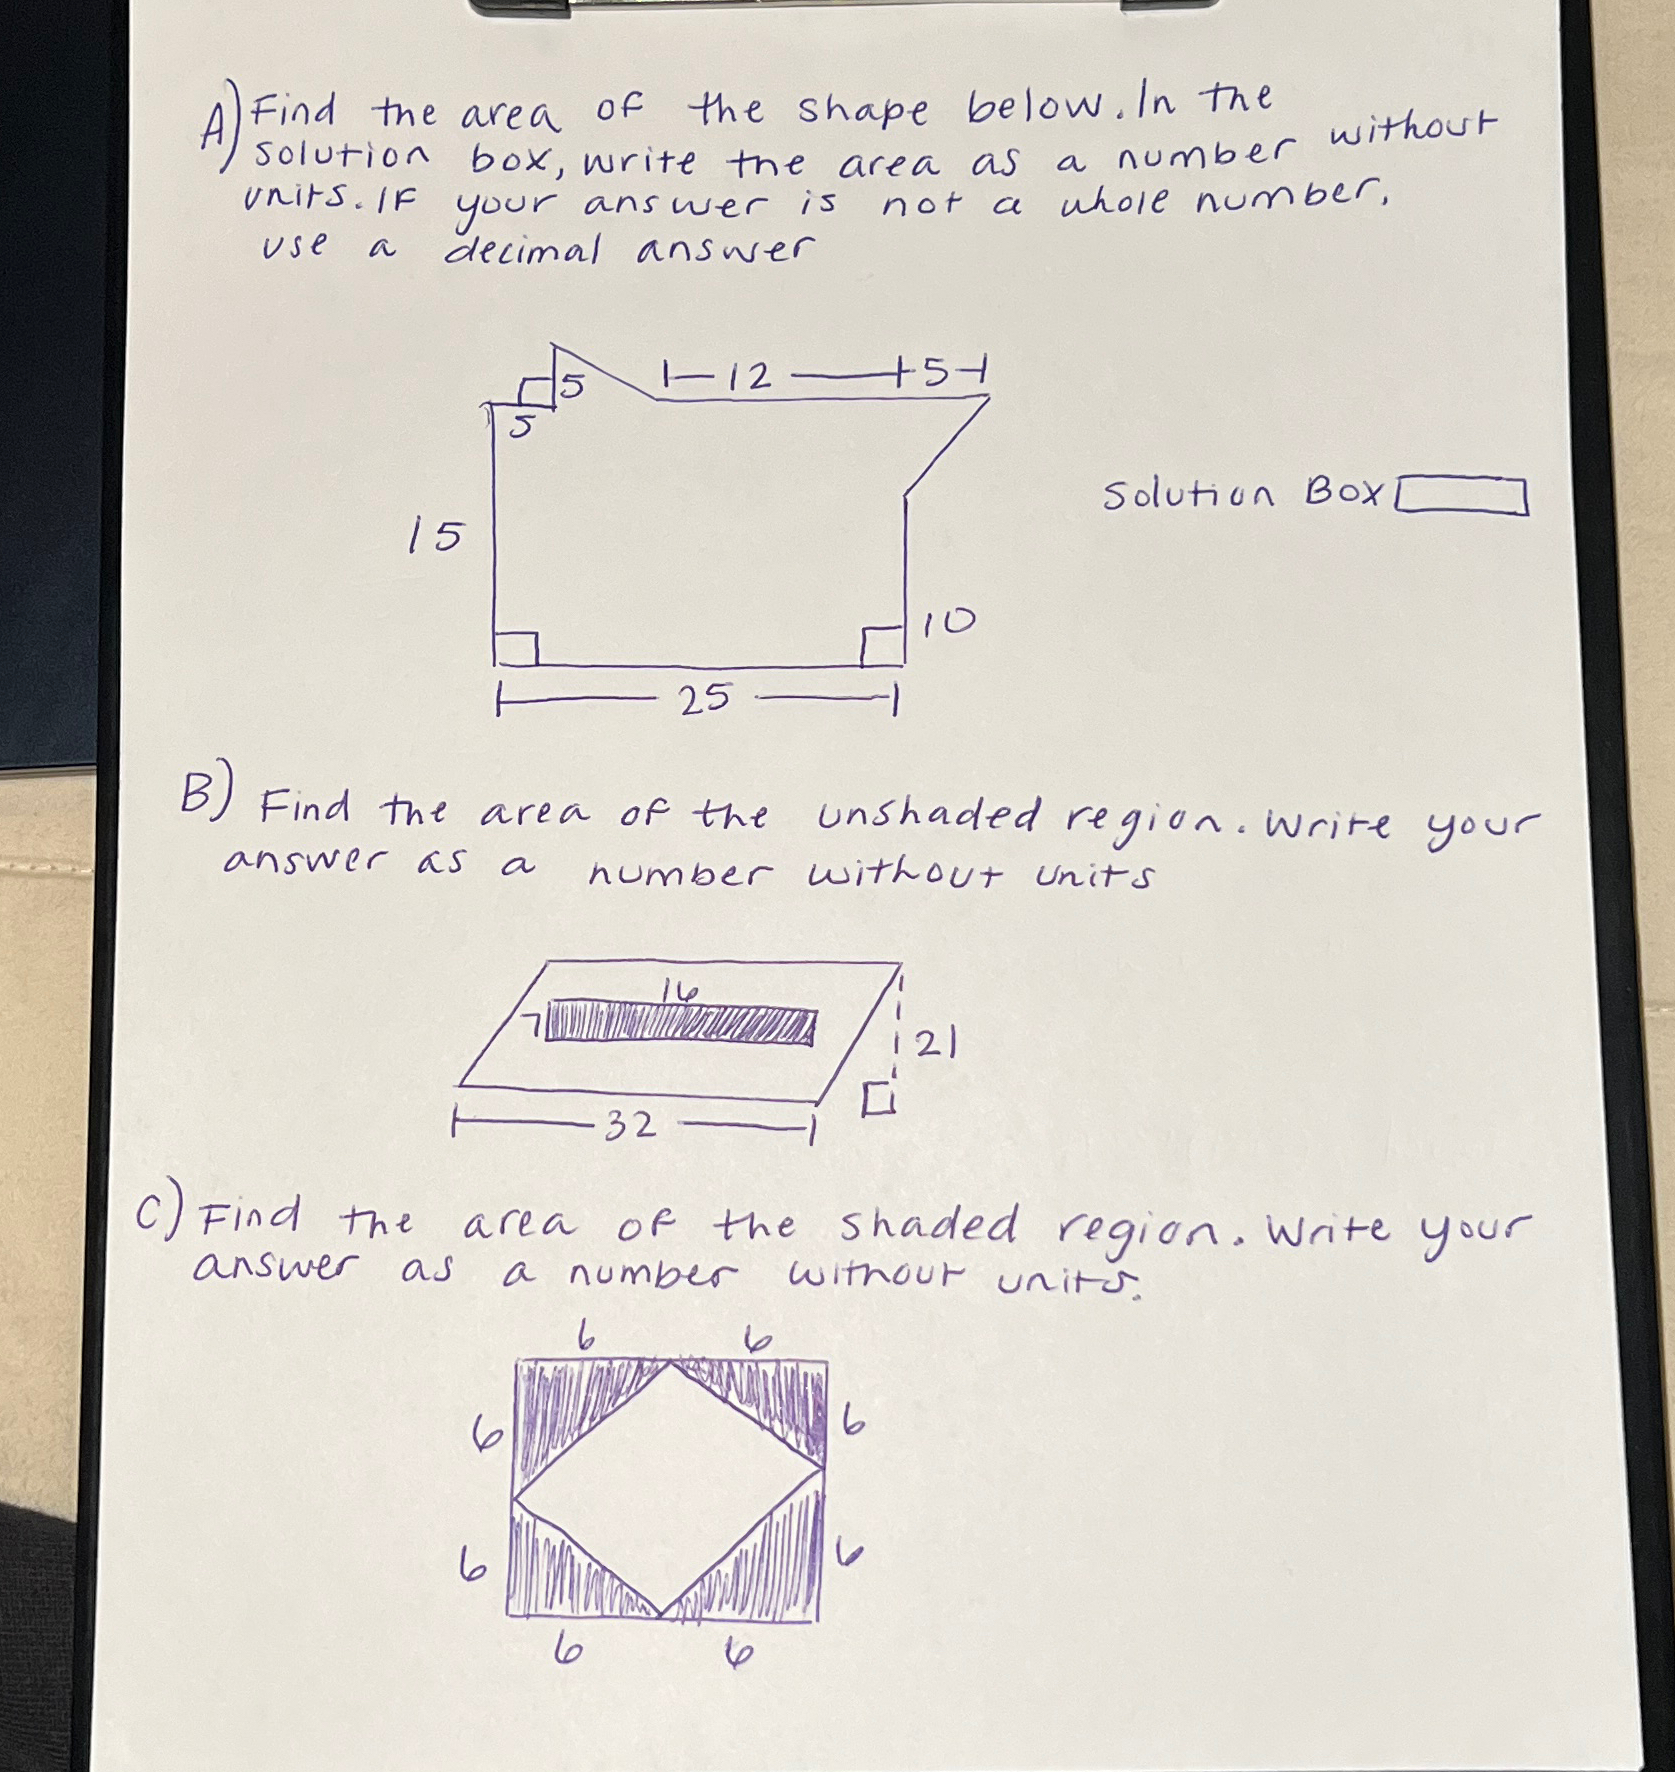 A) Find the area of the shape below. In the
solution box, write the area as a number without
units. If your answer is not a whole number,
use a decimal answer
5
12
5
5
15
Solution Box
10
25
B) Find the area of the unshaded region. Write your
answer as a number without units
16
7
21
32
C) Find the area of the shaded region. Write your
answer as a number without units.
6 6
6 6
6 6
6 6